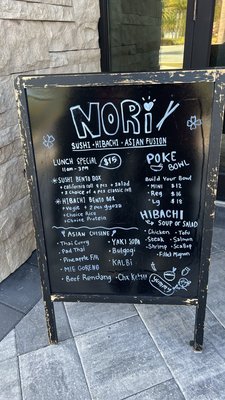 NORI
SUSHI · HIBACHI · ASIAN FUSION
LUNCH SPECIAL $15
11am - 3pm
SUSHI BENTO BOX
• California roll 4 pcs + salad
• 2 choice of 4 pcs classic roll
HIBACHI BENTO BOX
• Veggie + 2 pcs gyoza
• Choice Rice
• Choice Protein
POKE BOWL
Build Your Bowl
• Mini $12
• Reg $16
• Lg $19
HIBACHI
SOUP OR SALAD
• Chicken • Tofu
• Steak • Salmon
• Shrimp • Scallop
• Filet Mignon
ASIAN CUISINE
• Thai Curry
• Pad Thai
• Pineapple F/R
• MIE GORENG
• Beef Rendang
• YAKI SOBA
• Bulgogi
• KALBI
• Chx